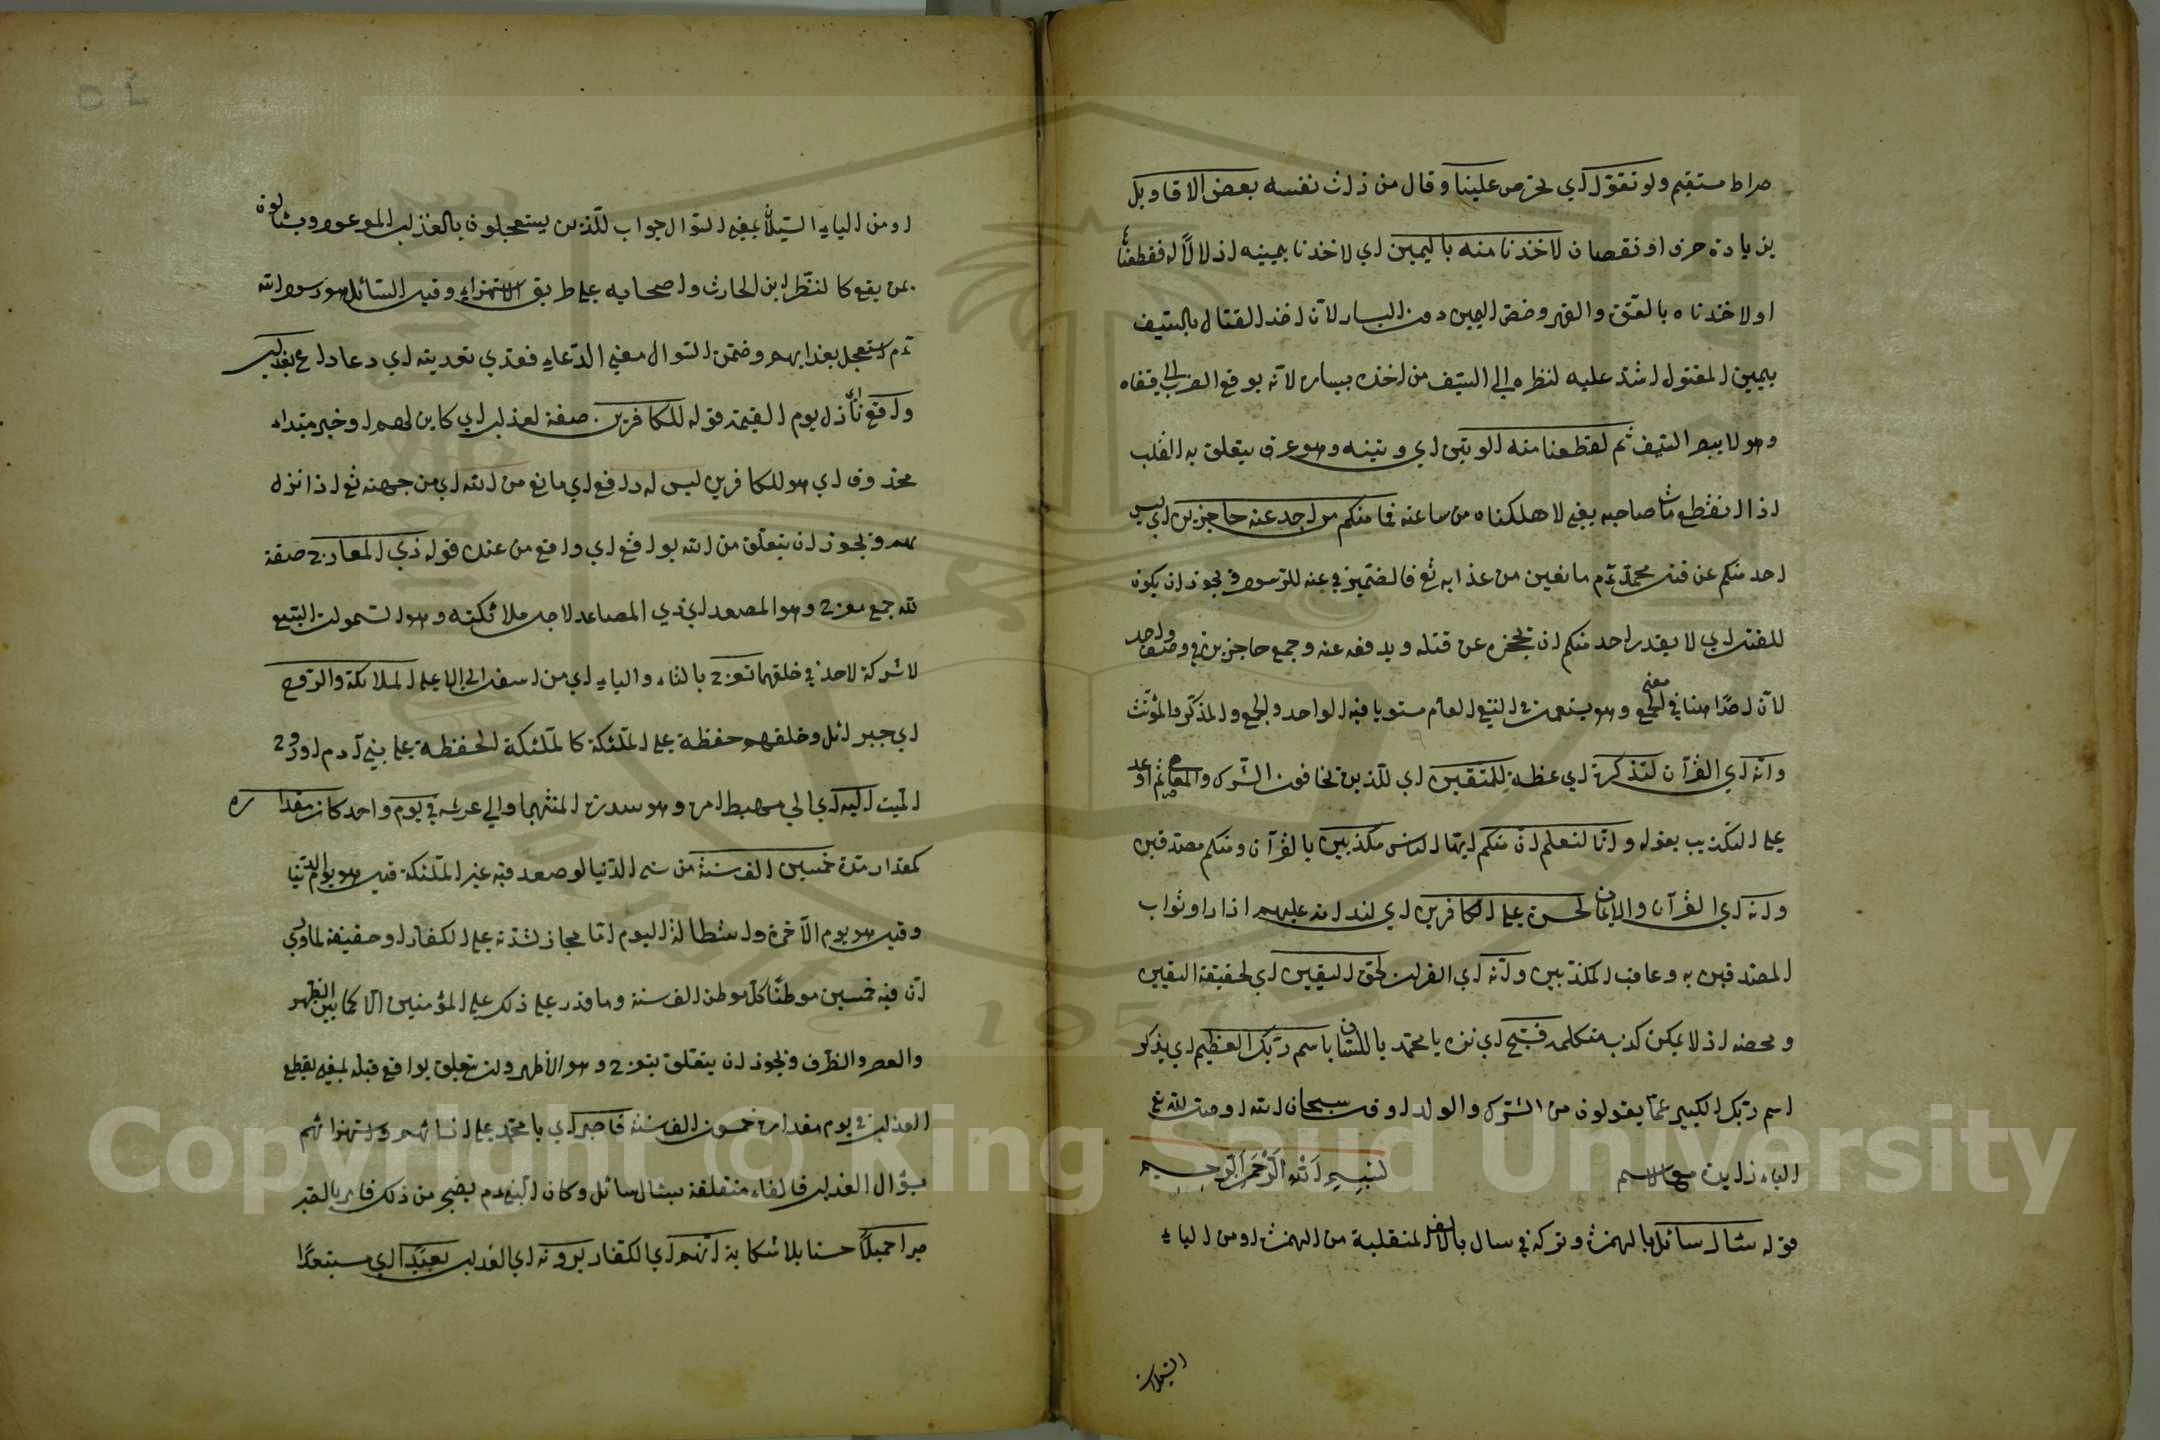 صراط مستقيم ولو تقوّل اي تخرص علينا وقال من ذات نفسه بعض الاقاويل
بزيادة حرف او نقصان لاخذنا منه باليمين اي لاخذنا بيمينه اذلالا له فقطعنا
او لاخذناه بالعنق والقهر وخص اليمين دون اليسار لان اخذ القتال بالسيف
بيمين المقتول اشد عليه لنظره الى السيف من اخذه بيساره لانه يوقع الضرب الى قفاه
وهو لا يبصر السيف ثم لقطعنا منه الوتين اي وتينه وهو عرق يتعلق به القلب
اذا انقطع مات صاحبه يعني لاهلكناه من ساعته فما منكم من احد عنه حاجزين اي ليس
احد منكم عن قتل محمد عم مانعين من عذابه تع فالضمير في عنه للرسول ويجوز ان يكون
للقتل اي لا يقدر احد منكم ان يحجزه عن قتله ويدفعه عنه وجمع حاجزين في وصف واحد
لان احدا هنا في معنى الجمع وهو يستعمل في النفي العام مستويا فيه الواحد والجمع والمذكر والمؤنث
وانه اي القرآن لتذكرة اي عظة للمتقين اي للذين يخافون الشرك والمعاصي ثم اوعد
على التكذيب بقوله وانا لنعلم ان منكم ايها الناس مكذبين بالقرآن ومنكم مصدقين
وانه اي القرآن والايمان لحسرة على الكافرين اي لندامة عليهم اذا راوا ثواب
المصدقين به وعاقب المكذبين وانه اي القرآن لحق اليقين اي لحقيقة اليقين
ومحضه اذ لا يمكن كذب متكلمه فسبح اي نزه يا محمد باللسان باسم ربك العظيم اي بذكر
اسم ربك الكبير عما يقولون من الشرك والولد او قل سبحان الله او صل لله تع
الباء زايدة مع الاسم بسم الله الرحمن الرحيم
قوله سال سائل بالهمزة وتركه في سال بالالف المنقلبة من الهمزة او من الياء
السيلان
او من الياء السيلان بمعنى السوال جواب للذين يستعجلون بالعذاب الموعود ويسالون
عمن يقع كالنظر ابن الحارث واصحابه على طريق الاستهزاء وقيل السائل هو رسول الله
عم استعجل بعذابهم وضمن السوال معنى الدعاء فعدي تعديته اي دعا داع بعذاب
واقع نازل يوم القيمة قوله للكافرين صفة لعذاب اي كاين لهم او خبر مبتداء
محذوف اي هو للكافرين ليس له دافع اي مانع من الله اي من جهته تع اذا نزل
بهم ويجوز ان يتعلق من الله بواقع اي واقع من عنده قوله ذي المعارج صفة
لله جمع معرج وهو المصعد اي ذي المصاعد لاجل ملائكته وهو السموات السبع
لا شركة لاحد في خلقها تعرج بالتاء والياء اي من اسفل الى اعلى الملائكة والروح
اي جبرائل وخلقهم حفظة على الملئكة كالملئكة الحفظة على بني آدم او روح
الميت اليه اي الى مهبط امره وهو سدرة المنتهى او الى عرشه في يوم واحد كان مقداره
كمقدار مدة خمسين الف سنة من سنى الدنيا لو صعد فيه غير الملئكة قيل هو يوم الدنيا
وقيل هو يوم الآخرة واستطالة اليوم اما مجاز لشدته على الكفار او حقيقة لما روي
ان فيه خمسين موطنا كل موطن الف سنة وما قدر على ذلك على المؤمنين الا كما بين الظهر
والعصر والظرف ويجوز ان يتعلق بتعرج وهو الاظهر وان يتعلق بواقع قبله بمعنى يقطع
العذاب في يوم مقداره خمسون الف سنة فاصبر اي يا محمد على اذاهم واستهزائهم
بسؤال العذاب فالفاء متعلقة بسال سائل وكان النبي عم يضجر من ذلك فامر بالصبر
صبرا جميلا حسنا بلا شكاية انهم اي الكفار يرونه اي العذاب بعيدا اي مستبعدا